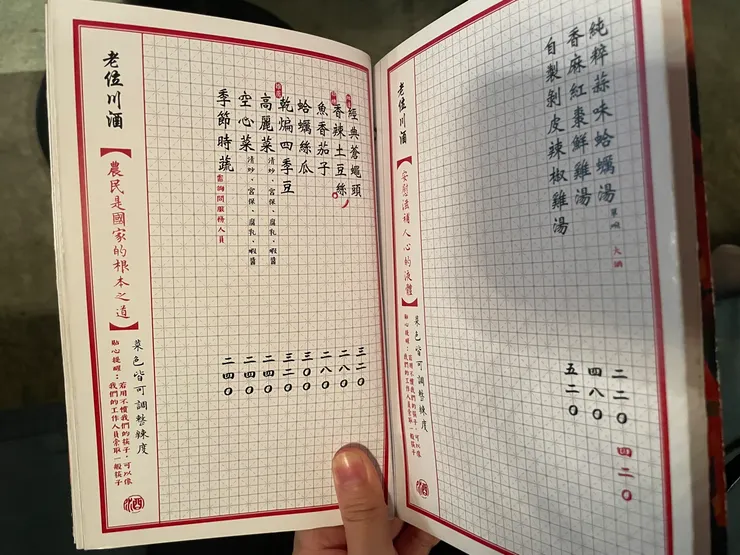 純粹蒜味蛤蠣湯 單碗 大鍋 二二0 四二0
香麻紅棗鮮雞湯 四八0
自製剝皮辣椒雞湯 五二0
老位川酒
【安慰滋補人心的液體】
菜色皆可調整辣度
貼心提醒：若用不慣我們的筷子，可以像
我們的工作人員索取一般筷子
經典蒼蠅頭 三二0
香辣土豆絲 二八0
魚香茄子 二八0
蛤蠣絲瓜 三00
乾煸四季豆 三二0
高麗菜 清炒、宮保、腐乳、蝦醬 二四0
空心菜 清炒、宮保、腐乳、蝦醬 二四0
季節時蔬 需詢問服務人員 二四0
老位川酒
【農民是國家的根本之道】
菜色皆可調整辣度
貼心提醒：若用不慣我們的筷子，可以像
我們的工作人員索取一般筷子